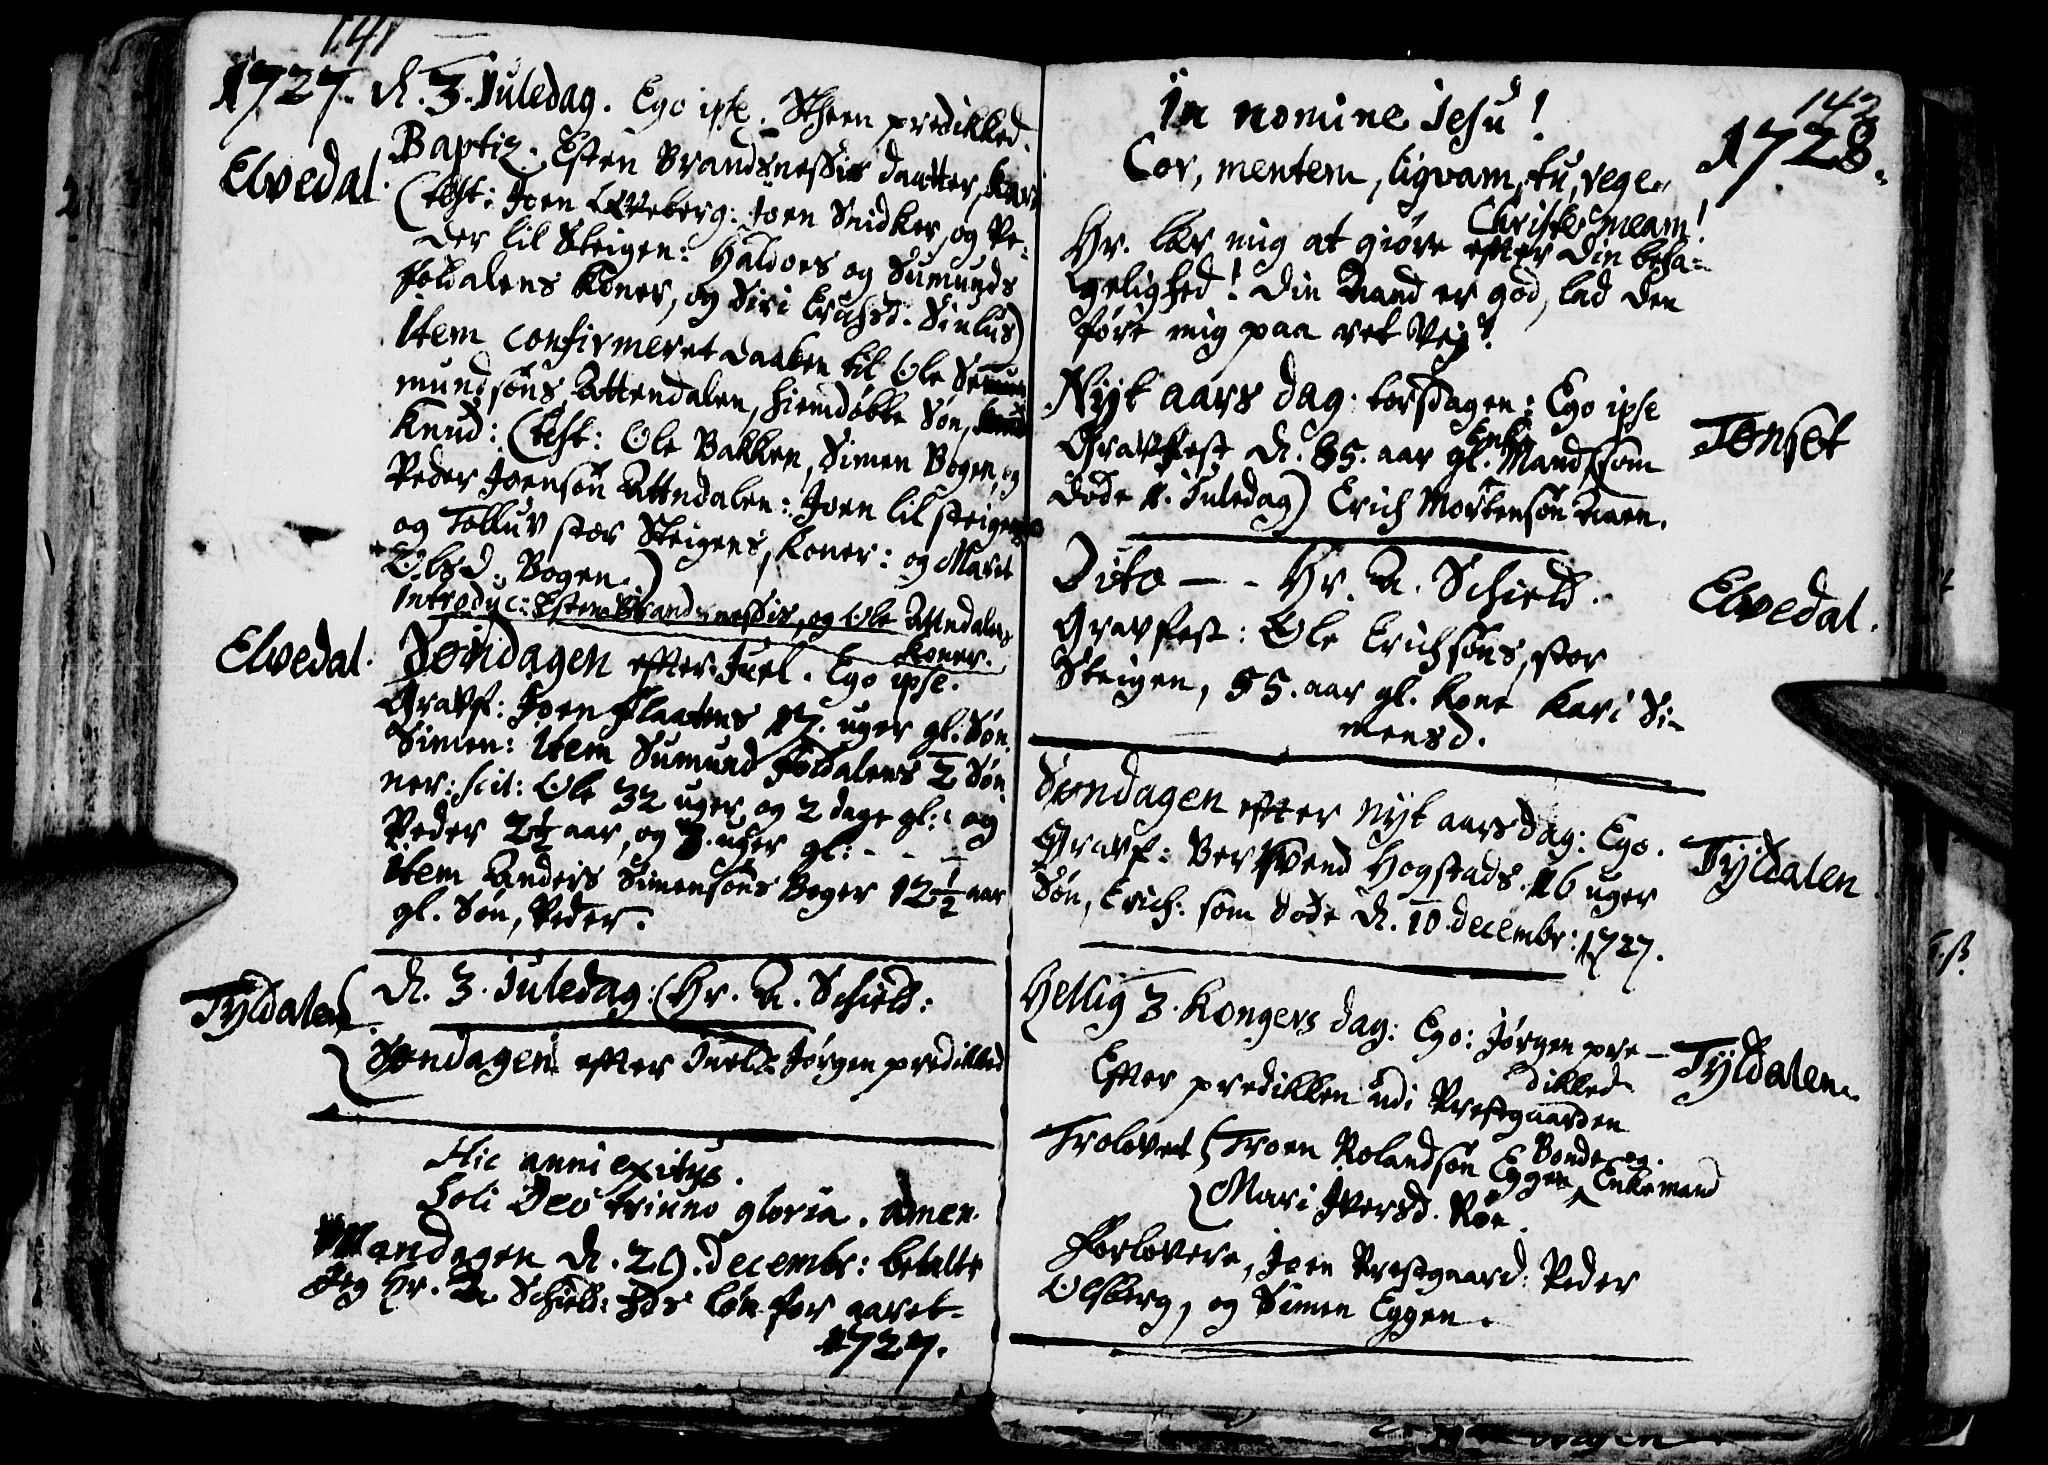 141
1727. d. 3. Juledag. Ego ipse. Scheen predikked.
Elvedal.
Baptiz. Esten Brandsnessis daatter, Kari
(test: Joen Løveberg: Joen Snidker, og Pe-
der lil Steigen: Haldoes og Sumunds
Foldalens Koner, og Siri Erichsd.
Item confirmeret daaben til Ole
mundsøns Attendalen, hiemdøbte Søn,
Knud: (test: Ole Bakken, Simen Bogen, og
Peder Joensøn Attndalen: Joen lil steigens
og Tolluv stor Steigens, Koner: og Maret
Olsd. Bogen.)
Introduc: Esten Brandsnessis, og Ole Attndalens
Koner.
Elvedal.
Søndagen efter Juel. Ego ipse.
Gravf: Joen Plaatens 17. uger gl. Søn,
Simen: Item Sumund Foldalens 2 Søn-
ner: scil: Ole 32 uger og 2 dage gl: og
Peder 2½ aar, og 3. uger gl: - - -
Item Anders Simensøns Boger 12½ aar
gl. Søn, Peder.
Tyldalen
d. 3. Juledag: (Hr. A. Schield:
Søndagen efter Juel: Jørgen predikked
Hic anni exitus.
Soli Deo triuno gloria. Amen.
Mandagen d. 29. decembr: betalte
Jeg Hr. A. Schield: løn for aaret
1727.
142
1728.
In nomine Jesu!
Cor, mentem, ligvam, tu, rege,
Christe meam!
Hr. lær mig at giøre efter Din beha-
gelighed! Din Aand er god, lad den
føre mig paa ret Vej!
Tønset
Nyt aars dag. torsdagen: Ego ipse
Gravfest d. 85. aar gl. Enke Mand, (som
døde 1. Juledag) Erich Mortensøn Aaen.
Elvedal.
Dito - - Hr. A. Schield.
Gravfest: Ole Erichsøns, stor
Steigen, 55. aar gl. Kone Kari Si-
mensd.
Tyldalen
Søndagen efter Nyt aars dag: Ego.
Gravf: Bersvend Hogstads 16 uger
Søn, Erich: som døde d. 10. decembr: 1727.
Tyldalen.
Hellig 3. Kongers dag: Ego: Jørgen pre-
dikked
Efter predikken udi Prestgaarden
Trolovet Troen Rolandsøn Eggen, Bonde og
Enkemand
Mari Iversd. Røe.
Forlovere, Joen Prestgaard: Peder
Olsberg, og Simen Eggen.